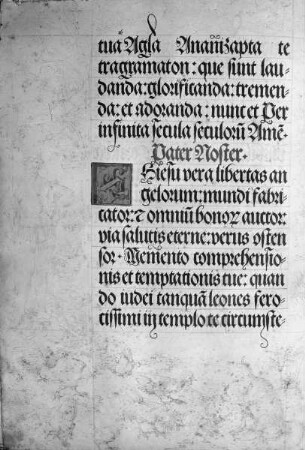 tuā Agla Ananizapta te
tragramaton: que sunt lau
danda: glorificanda: tremen
da: et adoranda: nunc et Per
infinita secula seculorū Amē
Pater Noster.
O Iesu vera libertas an
gelorum: mundi fabri
cator: ⁊ omniū bonoꝝ auctor:
via salutis eterne: verus osten
sor. Memento comprehensio
nis et temptationis tue: quan
do iudei tanquā leones fero
cissimi in templo te circumste-